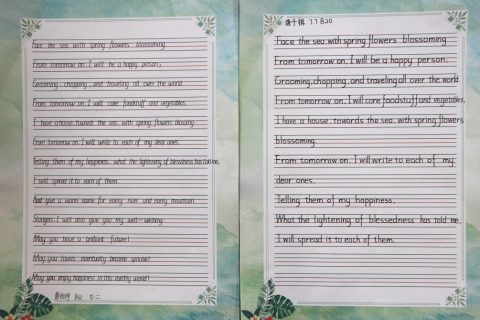 Face the sea, with spring flowers blossoming
From tomorrow on, I will be a happy person;
Grooming, chopping, and traveling all over the world.
From tomorrow on, I will care foodstuff and vegetables.
I have a house, towards the sea, with spring flowers blossing.
From tomorrow on, I will write to each of my dear ones.
Telling them of my happiness, what the lightening of blessedness has told me,
I will spread it to each of them.
And give a warm name for every river and every mountain.
Stangers, I will also give you my well-wishing.
May you have a brilliant future!
May you lovers eventually become spouse!
May you enjoy happiness in this earthly world!
7.7 B20
Face the sea, with spring flowers blossoming
From tomorrow on, I will be a happy person.
Grooming, chopping, and traveling all over the world.
From tomorrow on, I will care foodstuff and vegetables.
I have a house, towards the sea, with spring flowers
blossoming.
From tomorrow on, I will write to each of my
dear ones.
Telling them of my happiness.
What the lightening of blessedness has told me.
I will spread it to each of them.